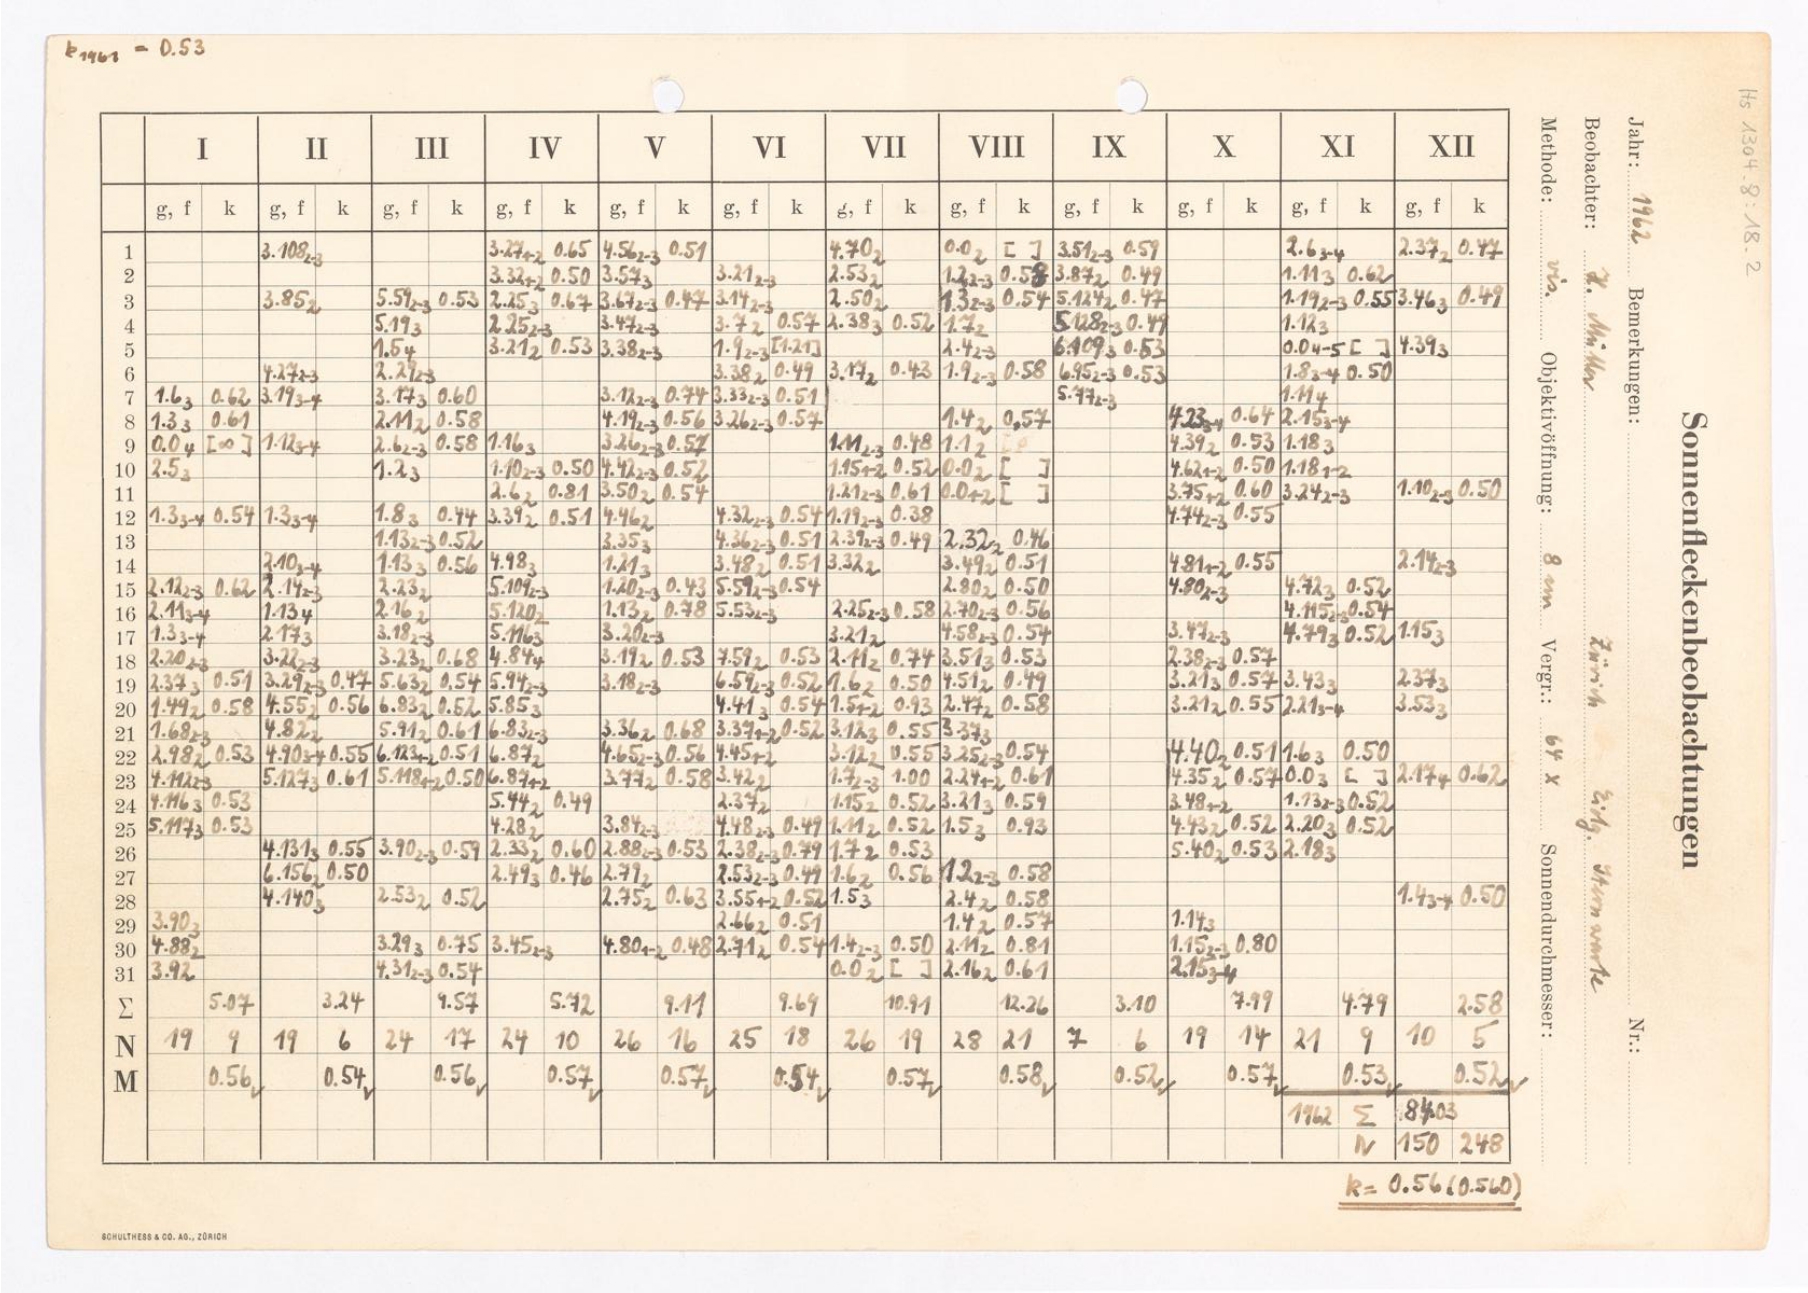 k1961 = 0.53
I II III IV V VI VII VIII IX X XI XII
g, f k g, f k g, f k g, f k g, f k g, f k g, f k g, f k g, f k g, f k g, f k g, f k
1 3.108₂₋₃ 3.27₁₋₂ 0.65 4.56₂₋₃ 0.51 4.70₂ 0.0₂ [ ] 3.51₂₋₃ 0.59 2.6₃₋₄ 2.37₂ 0.47
2 3.32₁₋₂ 0.50 3.57₃ 3.21₂₋₃ 2.53₂ 1.2₂₋₃ 0.58 3.87₂ 0.49 1.11₃ 0.62
3 3.85₂ 5.59₂₋₃ 0.53 2.25₃ 0.67 3.67₂₋₃ 0.47 3.14₂₋₃ 2.50₂ 1.3₂₋₃ 0.54 5.124₂ 0.47 1.19₂₋₃ 0.55 3.46₃ 0.49
4 5.19₃ 2.25₂₋₃ 3.47₂₋₃ 3.7₂ 0.57 2.38₃ 0.52 1.7₂ 5.128₂₋₃ 0.49 1.12₃
5 1.5₄ 3.21₂ 0.53 3.38₂₋₃ 1.9₂₋₃ [1.21] 2.4₂₋₃ 6.109₃ 0.53 0.0₄₋₅ [ ] 4.39₃
6 4.27₂₋₃ 2.29₂₋₃ 3.38₂ 0.49 3.17₂ 0.43 1.9₂₋₃ 0.58 6.95₂₋₃ 0.53 1.8₃₋₄ 0.50
7 1.6₃ 0.62 3.19₃₋₄ 3.17₃ 0.60 3.12₂₋₃ 0.74 3.33₂₋₃ 0.51 5.77₂₋₃ 1.11₄
8 1.3₃ 0.61 2.11₂ 0.58 4.19₂₋₃ 0.56 3.26₂₋₃ 0.57 1.4₂ 0,57 4.23₃₋₄ 0.64 2.15₃₋₄
9 0.0₄ [∞] 1.12₃₋₄ 2.6₂₋₃ 0.58 1.16₃ 3.26₂₋₃ 0.57 1.11₂₋₃ 0.48 1.1₂ 4.39₂ 0.53 1.18₃
10 2.5₃ 1.2₃ 1.10₂₋₃ 0.50 4.42₂₋₃ 0.52 1.15₁₋₂ 0.52 0.0₂ [ ] 4.62₁₋₂ 0.50 1.18₁₋₂
11 2.6₂ 0.81 3.50₂ 0.54 1.21₂₋₃ 0.61 0.0₁₋₂ [ ] 3.75₁₋₂ 0.60 3.24₂₋₃ 1.10₂₋₃ 0.50
12 1.3₃₋₄ 0.54 1.3₃₋₄ 1.8₃ 0.44 3.39₂ 0.51 4.46₂ 4.32₂₋₃ 0.54 1.19₂₋₃ 0.38 4.74₂₋₃ 0.55
13 1.13₂₋₃ 0.52 3.35₃ 4.36₂₋₃ 0.51 2.39₂₋₃ 0.49 2.32₂ 0.46
14 2.10₃₋₄ 1.13₃ 0.56 4.98₃ 1.21₃ 3.48₂ 0.51 3.32₂ 3.49₂ 0.51 4.81₁₋₂ 0.55 2.14₂₋₃
15 2.12₂₋₃ 0.62 2.14₂₋₃ 2.23₂ 5.109₂₋₃ 1.20₂₋₃ 0.43 5.59₂₋₃ 0.54 2.80₂ 0.50 4.80₂₋₃ 4.72₃ 0.52
16 2.11₃₋₄ 1.13₄ 2.16₂ 5.120₂ 1.13₂ 0.78 5.53₂₋₃ 2.25₂₋₃ 0.58 2.70₂₋₃ 0.56 4.115₂₋₃ 0.54
17 1.3₃₋₄ 2.17₃ 3.18₂₋₃ 5.116₃ 3.20₂₋₃ 3.21₂ 4.58₂₋₃ 0.54 3.47₂₋₃ 4.79₃ 0.52 1.15₃
18 2.20₂₋₃ 3.22₂₋₃ 3.23₂ 0.68 4.84₄ 3.19₂ 0.53 7.59₂ 0.53 2.11₂ 0.74 3.51₃ 0.53 2.38₂₋₃ 0.57
19 2.37₃ 0.51 3.29₂₋₃ 0.47 5.63₂ 0.54 5.94₂₋₃ 3.18₂₋₃ 6.59₂₋₃ 0.52 1.6₂ 0.50 4.51₂ 0.49 3.21₃ 0.57 3.43₃ 2.37₃
20 1.49₂ 0.58 4.55₂ 0.56 6.83₂ 0.52 5.85₃ 4.41₃ 0.54 1.5₁₋₂ 0.93 2.47₂ 0.58 3.21₂ 0.55 2.21₃₋₄ 3.53₃
21 1.68₂₋₃ 4.82₂ 5.91₂ 0.61 6.83₂₋₃ 3.36₂ 0.68 3.37₁₋₂ 0.52 3.12₃ 0.55 3.37₃
22 2.98₂ 0.53 4.90₃₋₄ 0.55 6.123₁₋₂ 0.51 6.87₂ 4.65₂₋₃ 0.56 4.45₁₋₂ 3.12₂ 0.55 3.25₂₋₃ 0.54 4.40₂ 0.51 1.6₃ 0.50
23 4.112₂₋₃ 5.127₃ 0.61 5.118₁₋₂ 0.50 6.87₁₋₂ 3.77₂ 0.58 3.42₂ 1.7₂₋₃ 1.00 2.24₁₋₂ 0.61 4.35₂ 0.57 0.0₃ [ ] 2.17₄ 0.62
24 4.116₃ 0.53 5.44₂ 0.49 2.37₂ 1.15₂ 0.52 3.21₃ 0.59 3.48₁₋₂ 1.13₂₋₃ 0.52
25 5.117₃ 0.53 4.28₂ 3.84₂₋₃ 4.48₂₋₃ 0.49 1.11₂ 0.52 1.5₃ 0.93 4.43₂ 0.52 2.20₃ 0.52
26 4.131₃ 0.55 3.90₂₋₃ 0.59 2.33₂ 0.60 2.88₂₋₃ 0.53 2.38₂₋₃ 0.79 1.7₂ 0.53 5.40₂ 0.53 2.18₃
27 6.156₂ 0.50 2.49₃ 0.46 2.79₂ 2.53₂₋₃ 0.49 1.6₂ 0.56 1.2₂₋₃ 0.58
28 4.140₃ 2.53₂ 0.52 2.75₂ 0.63 3.55₁₋₂ 0.52 1.5₃ 2.4₂ 0.58 1.4₃₋₄ 0.50
29 3.90₃ 2.66₂ 0.51 1.4₂ 0.57 1.14₃
30 4.88₂ 3.29₃ 0.75 3.45₂₋₃ 4.80₁₋₂ 0.48 2.71₂ 0.54 1.4₂₋₃ 0.50 2.11₂ 0.81 1.15₂₋₃ 0.80
31 3.92 4.31₂₋₃ 0.54 0.0₂ [ ] 2.16₂ 0.61 2.15₃₋₄
Σ 5.07 3.24 9.57 5.72 9.11 9.69 10.91 12.26 3.10 7.99 4.79 2.58
N 19 9 19 6 24 17 24 10 26 16 25 18 26 19 28 21 7 6 19 14 21 9 10 5
M 0.56 0.54 0.56 0.57 0.57 0.54 0.57 0.58 0.52 0.57 0.53 0.52
1962 Σ 84.03
N 150 248
k = 0.56 (0.560)
SCHULTHESS & CO. AG., ZÜRICH
Hs 1304.8:18.2
Sonnenfleckenbeobachtungen
Jahr: 1962 Bemerkungen: Nr.:
Beobachter: H. Müller Zürich Eidg. Sternwarte
Methode: vis. Objektivöffnung: 8 cm Vergr.: 64 x Sonnendurchmesser: